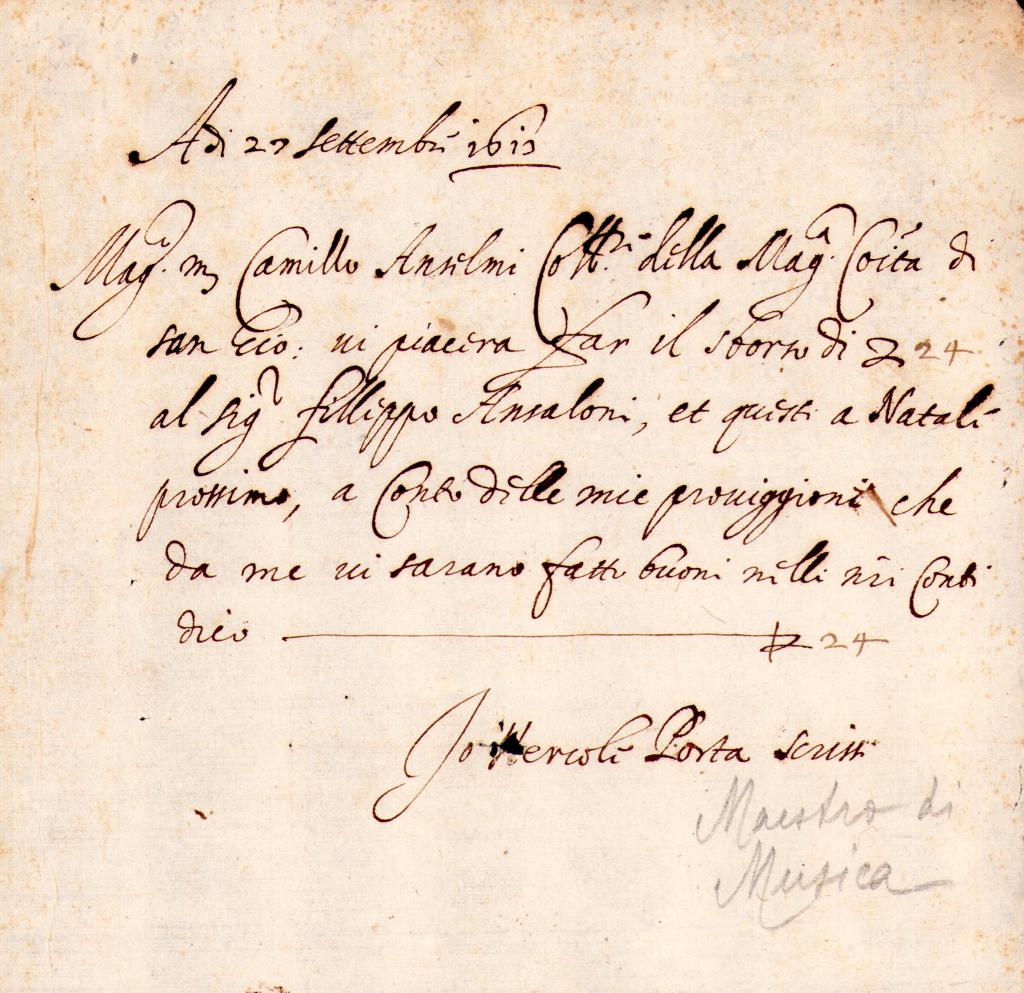 Adi 27 settembre 1613
Mag.r m Camillo Anselmi Coll.re della Mag.a Coita di
san Gio: vi piacera far il sborso di 24
al sig.r fillippo Ansaloni, et questi a Natale
prossimo, a Conto delle mie proviggioni che
da me vi sarano fatti buoni nelli nri Conti
dico 24
Io Hercole Porta scrissi
Maestro di
Musica